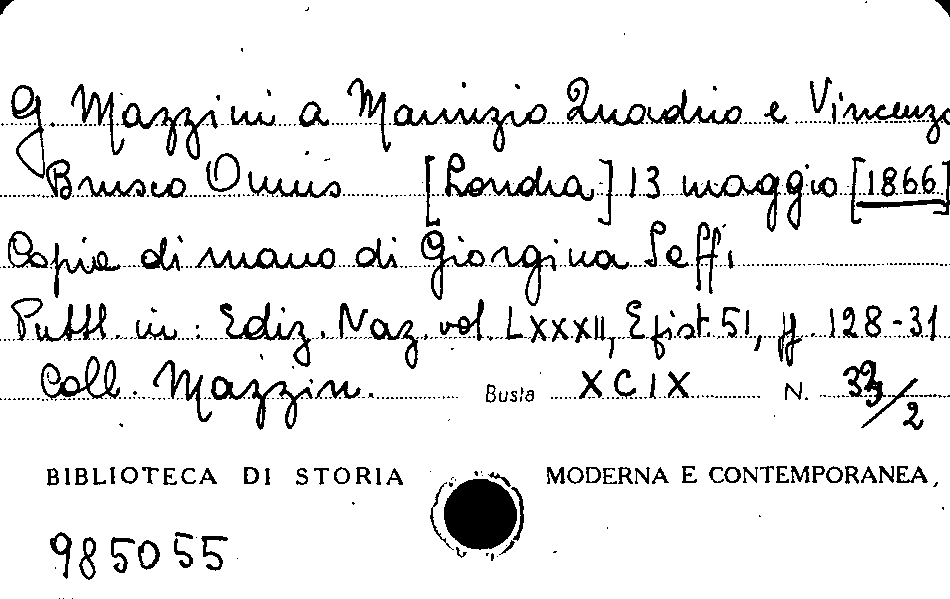 G. Mazzini a Maurizio Quadrio e Vincenzo
Brusco Onnis [Londra] 13 maggio [1866]
Copia di mano di Giorgina Saffi
Pubbl. in: Ediz. Naz. vol. LXXXII, Epist. 51, pp. 128-31
Coll. Mazzin. Busta XCIX N. /2
BIBLIOTECA DI STORIA MODERNA E CONTEMPORANEA,
985055